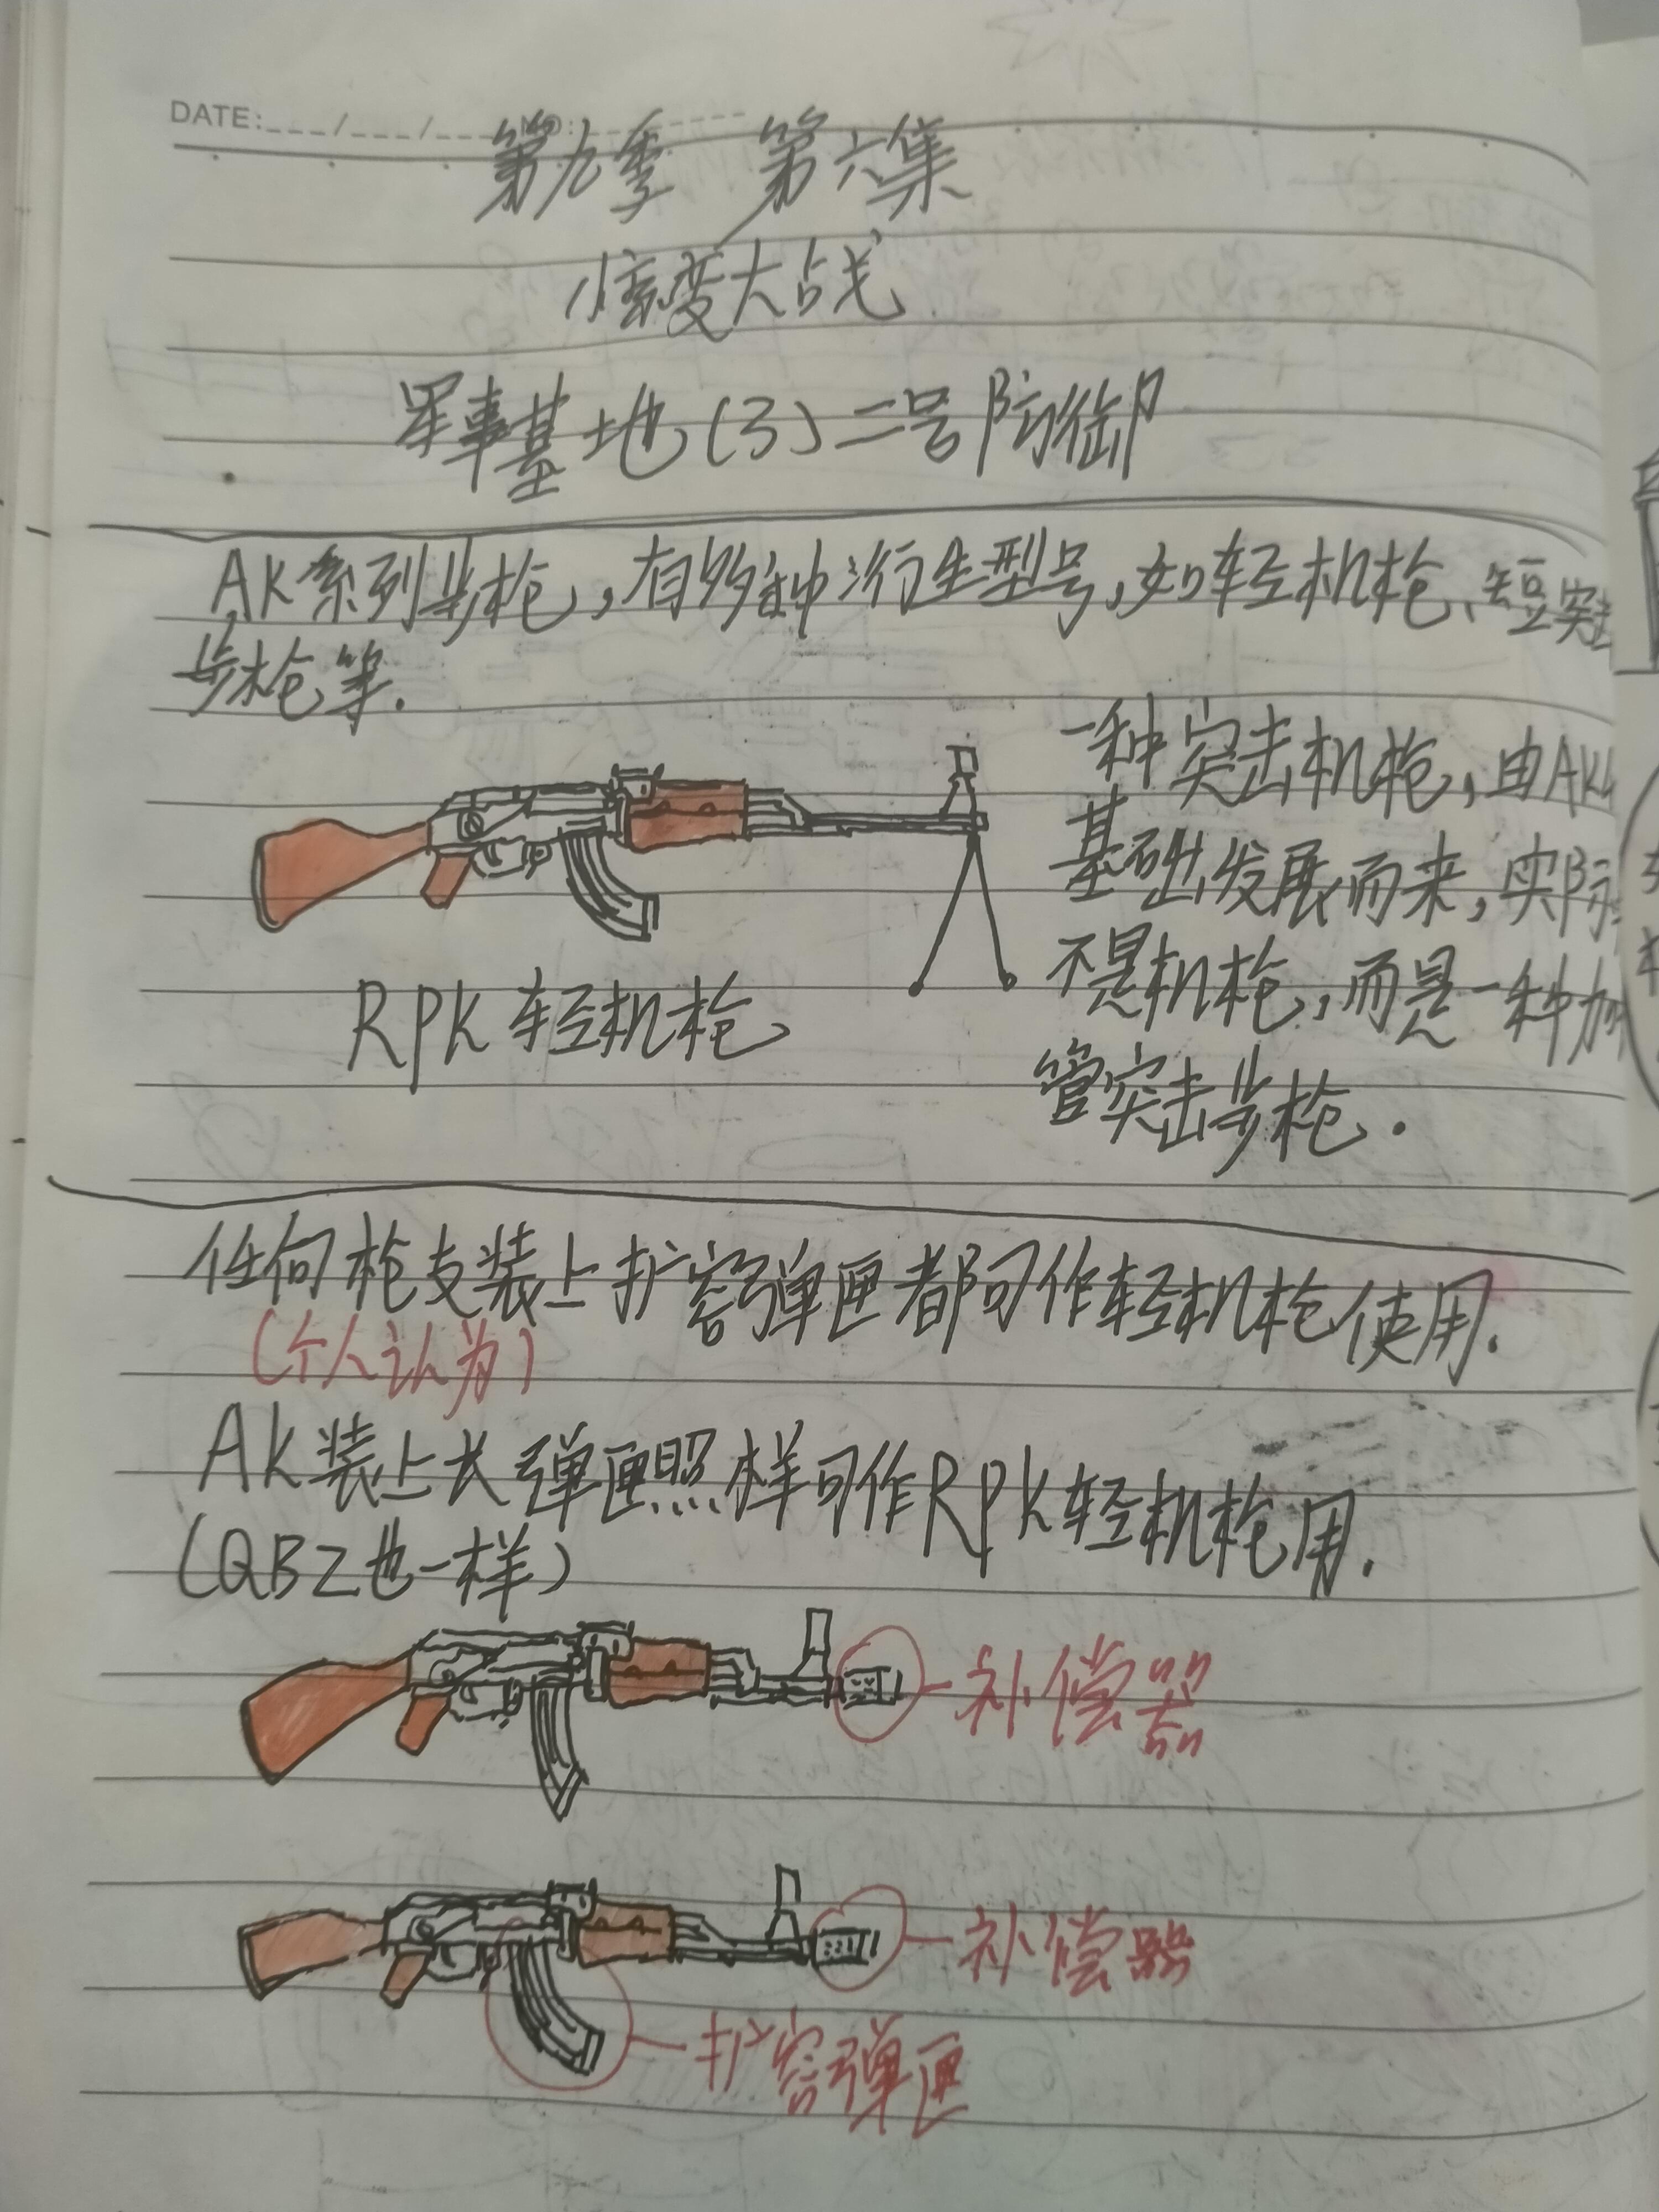 DATE: ___/___/___
第九季 第六集
惊变大战
军事基地(3)二号防御
AK系列步枪,有多种衍生型号,如轻机枪、短突击
步枪等.
一种突击机枪,由AK
基础发展而来,实际
不是机枪,而是一种加
管突击步枪.
RPK轻机枪
任何枪支装上扩容弹匣都可作轻机枪使用.
(个人认为)
AK装上长弹匣照样可作RPK轻机枪用.
(QBZ也一样)
补偿器
补偿器
扩容弹匣